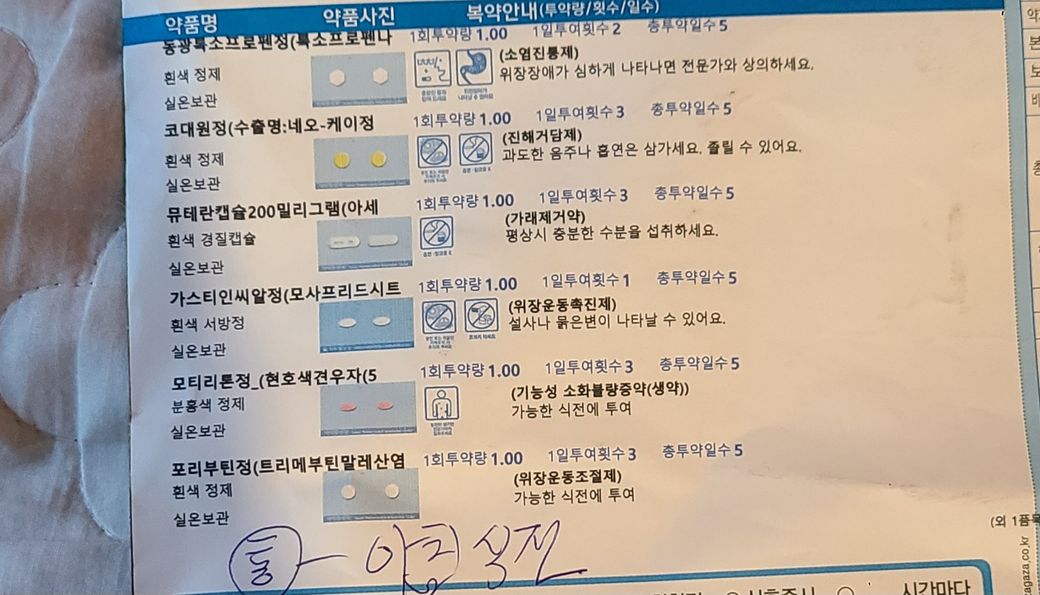 약품명 약품사진 복약안내(투약량/횟수/일수)
동광록소프로펜정(록소프로펜나 1회투약량 1.00 1일투여횟수 2 총투약일수 5
흰색 정제
실온보관
(소염진통제)
위장장애가 심하게 나타나면 전문가와 상의하세요.
코대원정(수출명:네오-케이정 1회투약량 1.00 1일투여횟수 3 총투약일수 5
흰색 정제
실온보관
(진해거담제)
과도한 음주나 흡연은 삼가세요. 졸릴 수 있어요.
뮤테란캡슐200밀리그램(아세 1회투약량 1.00 1일투여횟수 3 총투약일수 5
흰색 경질캡슐
실온보관
(가래제거약)
평상시 충분한 수분을 섭취하세요.
가스티인씨알정(모사프리드시트 1회투약량 1.00 1일투여횟수 1 총투약일수 5
흰색 서방정
실온보관
(위장운동촉진제)
설사나 묽은변이 나타날 수 있어요.
모티리톤정_(현호색견우자(5 1회투약량 1.00 1일투여횟수 3 총투약일수 5
분홍색 정제
실온보관
(기능성 소화불량증약(생약))
가능한 식전에 투여
포리부틴정(트리메부틴말레산염 1회투약량 1.00 1일투여횟수 3 총투약일수 5
흰색 정제
실온보관
(위장운동조절제)
가능한 식전에 투여
(외 1품목
통 식전
시간마다